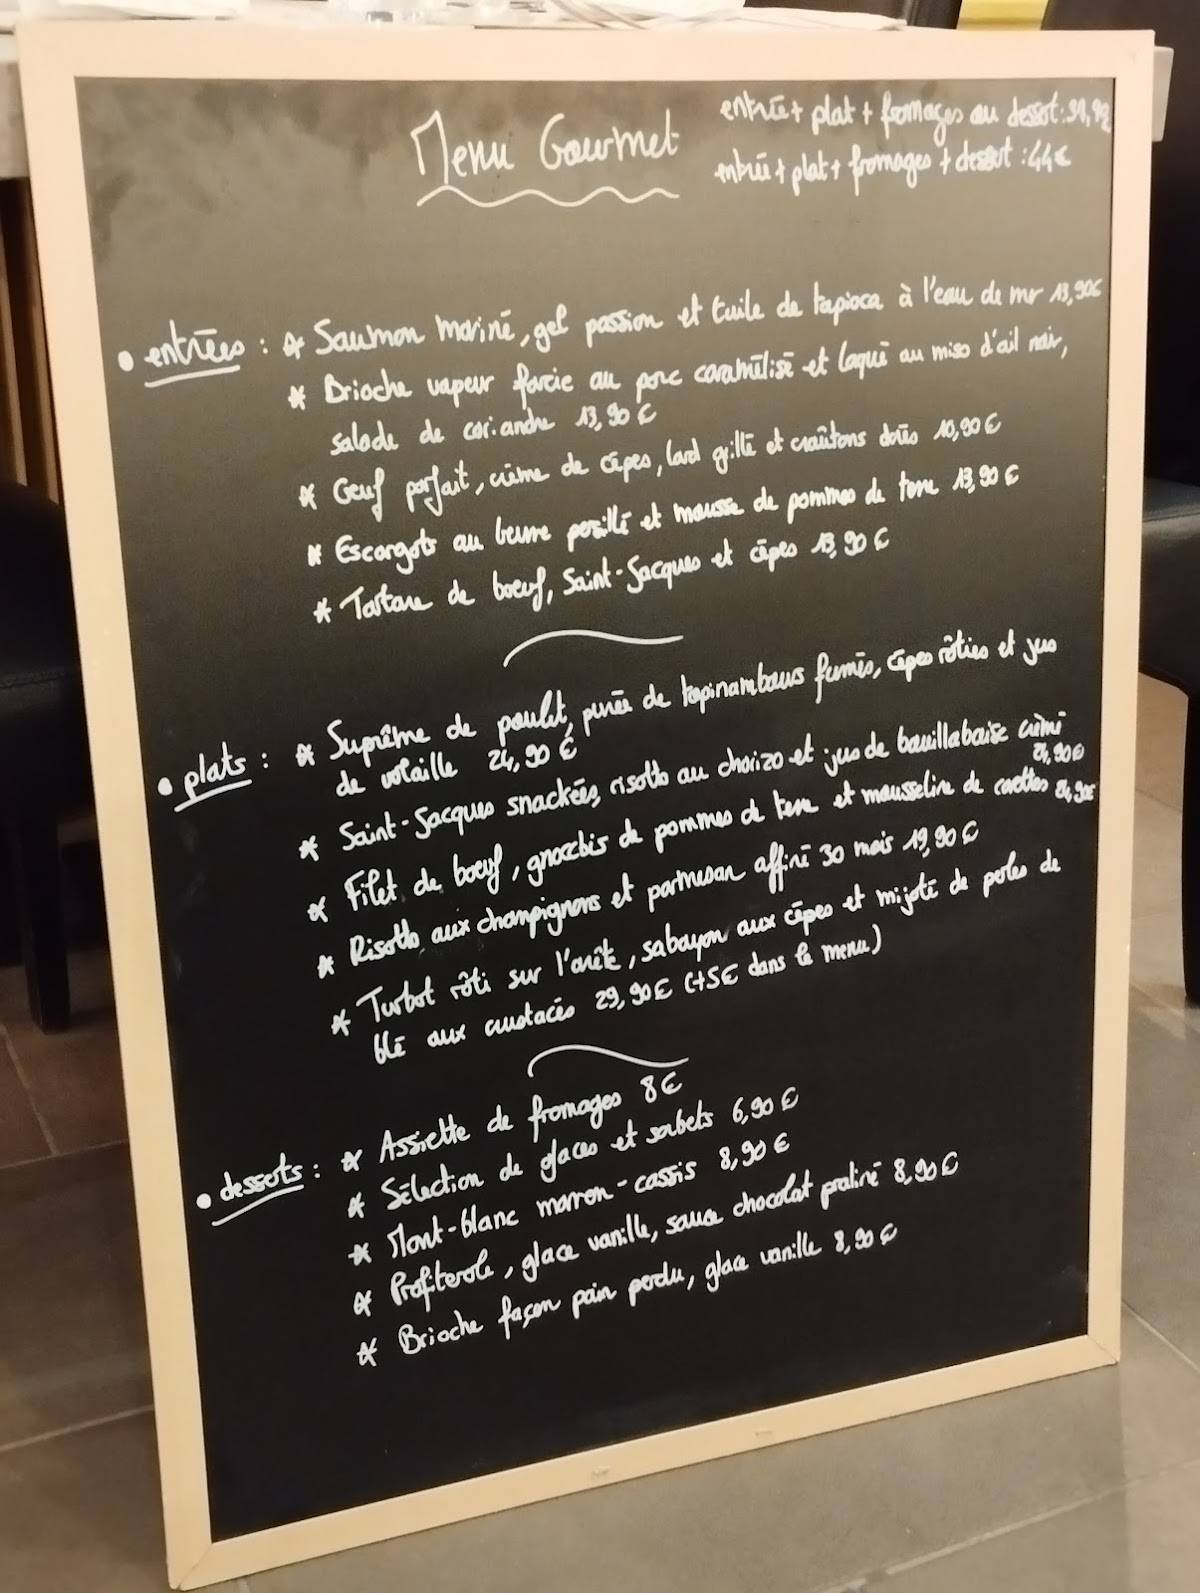 Menu Gourmet
entrée + plat + fromages ou dessert :
entrée + plat + fromages + dessert : 44€
• entrées : * Saumon mariné, gel passion et tuile de tapioca à l'eau de mr 13,90€
* Brioche vapeur farcie au porc caramélisé et laqué au miso d'ail noir,
salade de coriandre 13,90 €
* Oeuf parfait, crème de cèpes, lard grillé et croûtons dorés 10,90 €
* Escargots au beurre persillé et mousse de pommes de terre 13,90 €
* Tartare de boeuf, Saint-Jacques et cèpes 13,90 €
• plats : * Suprême de poulet, purée de topinambours fumés, cèpes rôties et jus
de volaille 24,90 €
* Saint-Jacques snackées, risotto au chorizo et jus de bouillabaisse crémé
24,90€
* Filet de boeuf, gnocchis de pommes de terre et mousseline de carottes 24,90€
* Risotto aux champignons et parmesan affiné 30 mois 19,90 €
* Turbot rôti sur l'arête, sabayon aux cèpes et mijoté de perles de
blé aux crustacés 29,90€ (+5€ dans le menu)
• desserts : * Assiette de fromages 8€
* Sélection de glaces et sorbets 6,90 €
* Mont-blanc marron-cassis 8,90 €
* Profiterole, glace vanille, sauce chocolat praliné 8,90€
* Brioche façon pain perdu, glace vanille 8,90 €